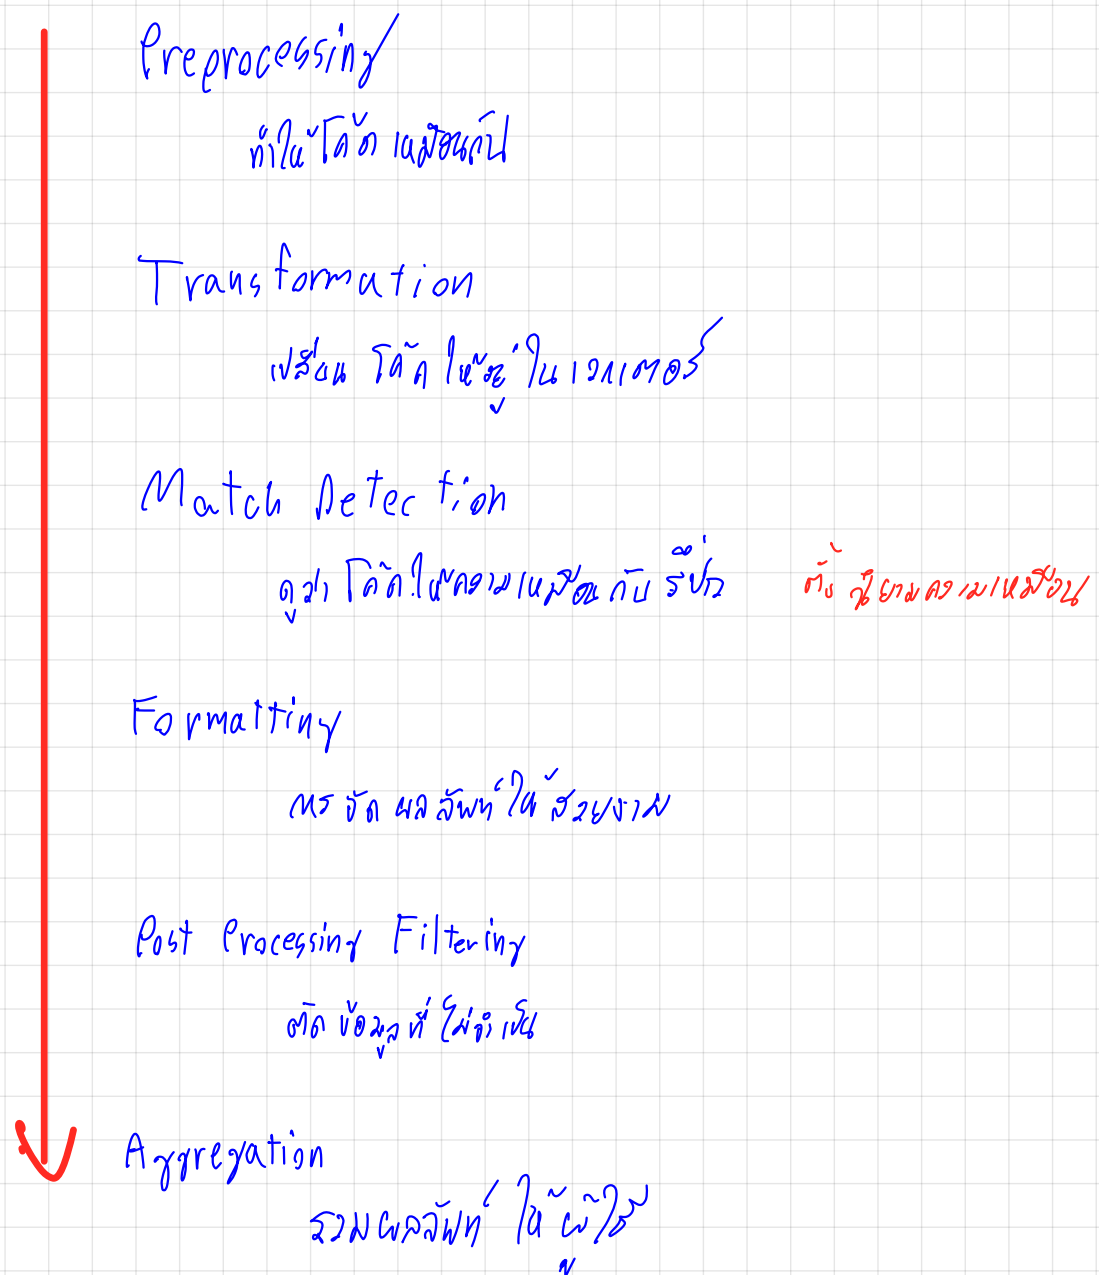 Preprocessing
ทำให้โค้ดเหมือนกัน
Transformation
เปลี่ยน โค้ด ให้อยู่ ในเวกเตอร์
Match Detection
ดูว่า โค้ดให้ความเหมือน กับ ตั้ง นิยามความเหมือน
Formatting
การ จัด ผลลัพท์ ให้ สวยงาม
Post Processing Filtering
ตัด ข้อมูลที่ ไม่จำเป็น
Aggregation
รวมผลลัพท์ ให้ ผู้ใช้